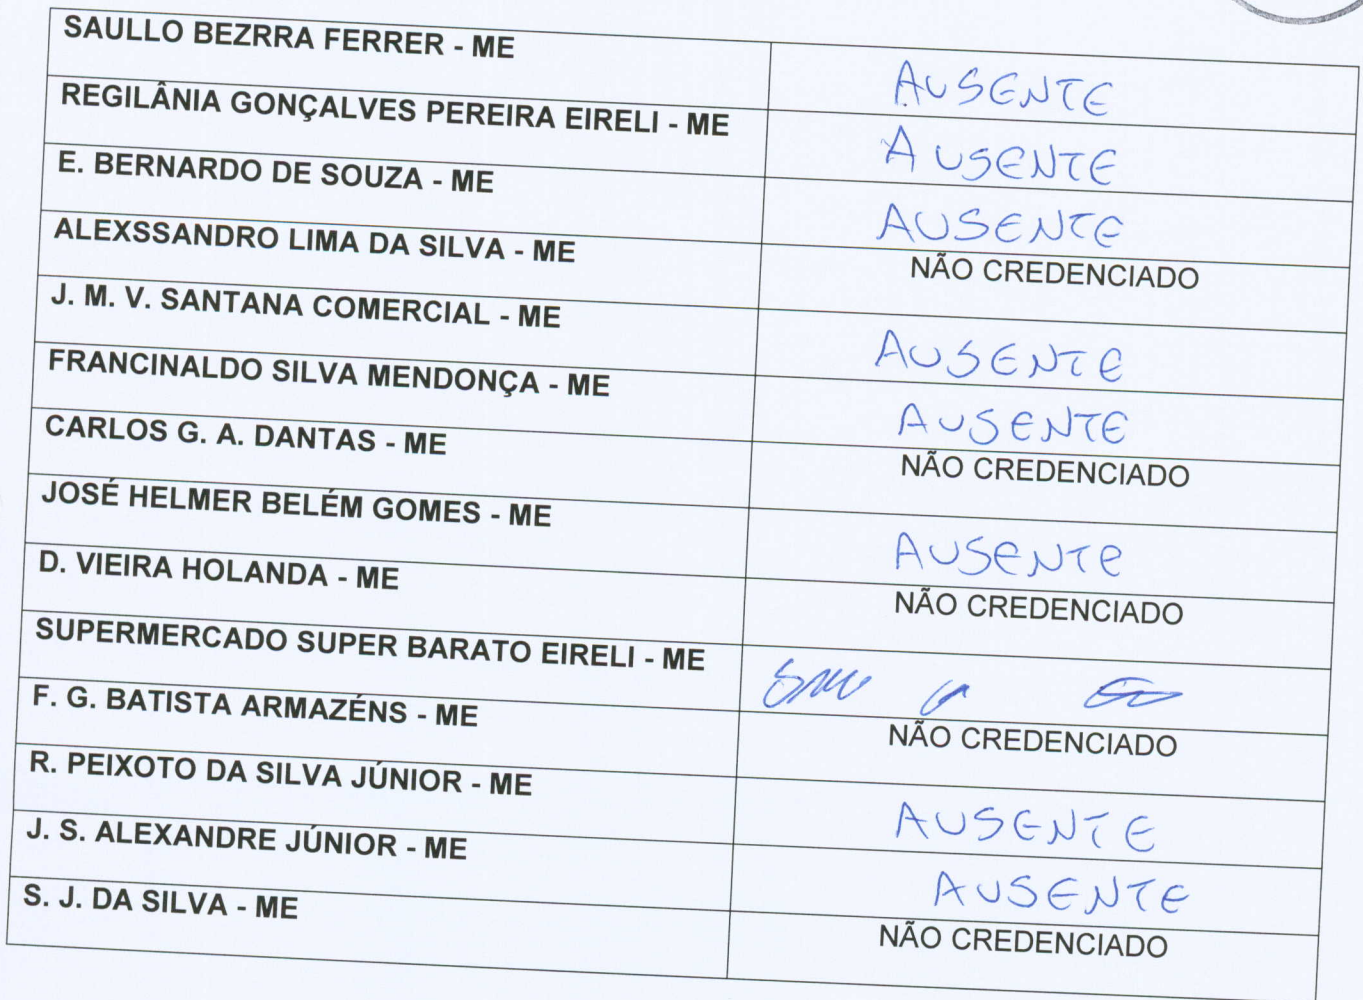 SAULLO BEZRRA FERRER - ME AUSENTE
REGILÂNIA GONÇALVES PEREIRA EIRELI - ME AUSENTE
E. BERNARDO DE SOUZA - ME AUSENTE
ALEXSSANDRO LIMA DA SILVA - ME NÃO CREDENCIADO
J. M. V. SANTANA COMERCIAL - ME AUSENTE
FRANCINALDO SILVA MENDONÇA - ME AUSENTE
CARLOS G. A. DANTAS - ME NÃO CREDENCIADO
JOSÉ HELMER BELÉM GOMES - ME AUSENTE
D. VIEIRA HOLANDA - ME NÃO CREDENCIADO
SUPERMERCADO SUPER BARATO EIRELI - ME
F. G. BATISTA ARMAZÉNS - ME NÃO CREDENCIADO
R. PEIXOTO DA SILVA JÚNIOR - ME AUSENTE
J. S. ALEXANDRE JÚNIOR - ME AUSENTE
S. J. DA SILVA - ME NÃO CREDENCIADO